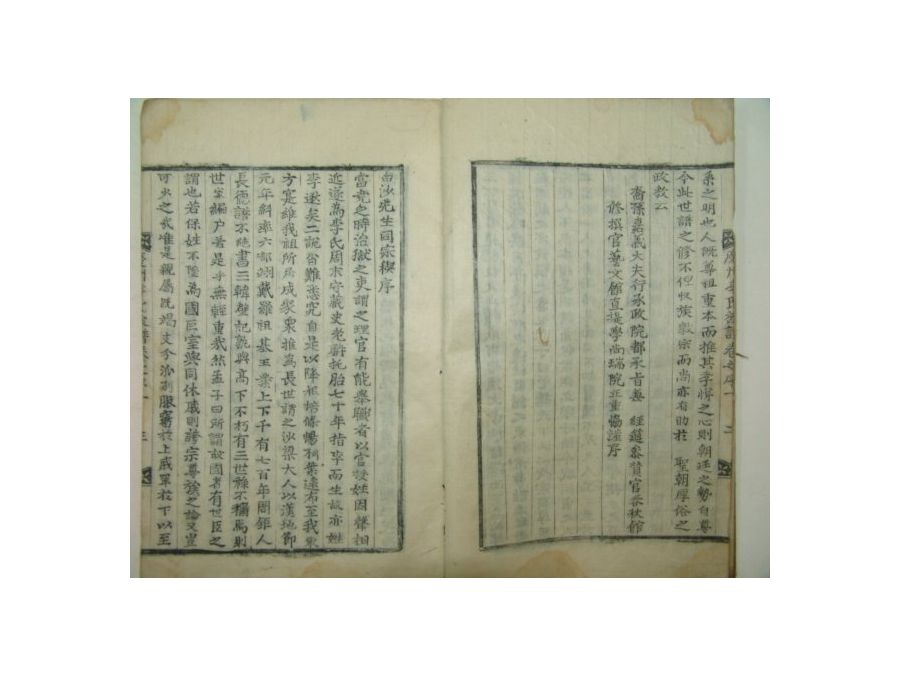 系之明也人旣尊祖重本而推其孝悌之心則朝廷之勢自尊
今此世譜之修不但收族敦宗而尚亦有助於 聖朝厚俗之
政教云
裔孫嘉義大夫行承政院都承旨兼 經筵參贊官春秋館
修撰官藝文館直提學尚瑞院正 謹序
慶州李氏 譜卷之序一 二
白沙先生同宗稧序
當堯之時治獄之吏謂之理官有能舉職者以官授姓因聲相
近遂爲李氏周末守藏史老聃托胎七十年指李而生故亦姓
李遂矣二說皆難悉究自是以降根條暢枝葉遠布至我東
方寔維我祖所居成聚衆推爲長世謂之沙梁大人以漢地節
元年斜率六部翊戴羅祖基王業上下千有七百年間鉅人
長德譜不絶書三韓壁起 與高下不朽有三世縣不 爲則
世家編户若是乎無輕重我然孟子曰所謂故國者有世臣之
謂也若保姓不墜爲國巨室與同休戚則 宗尊族之論又豈
可少之我 是親屬旣竭支分 別服窮於上戚單於下以至
三